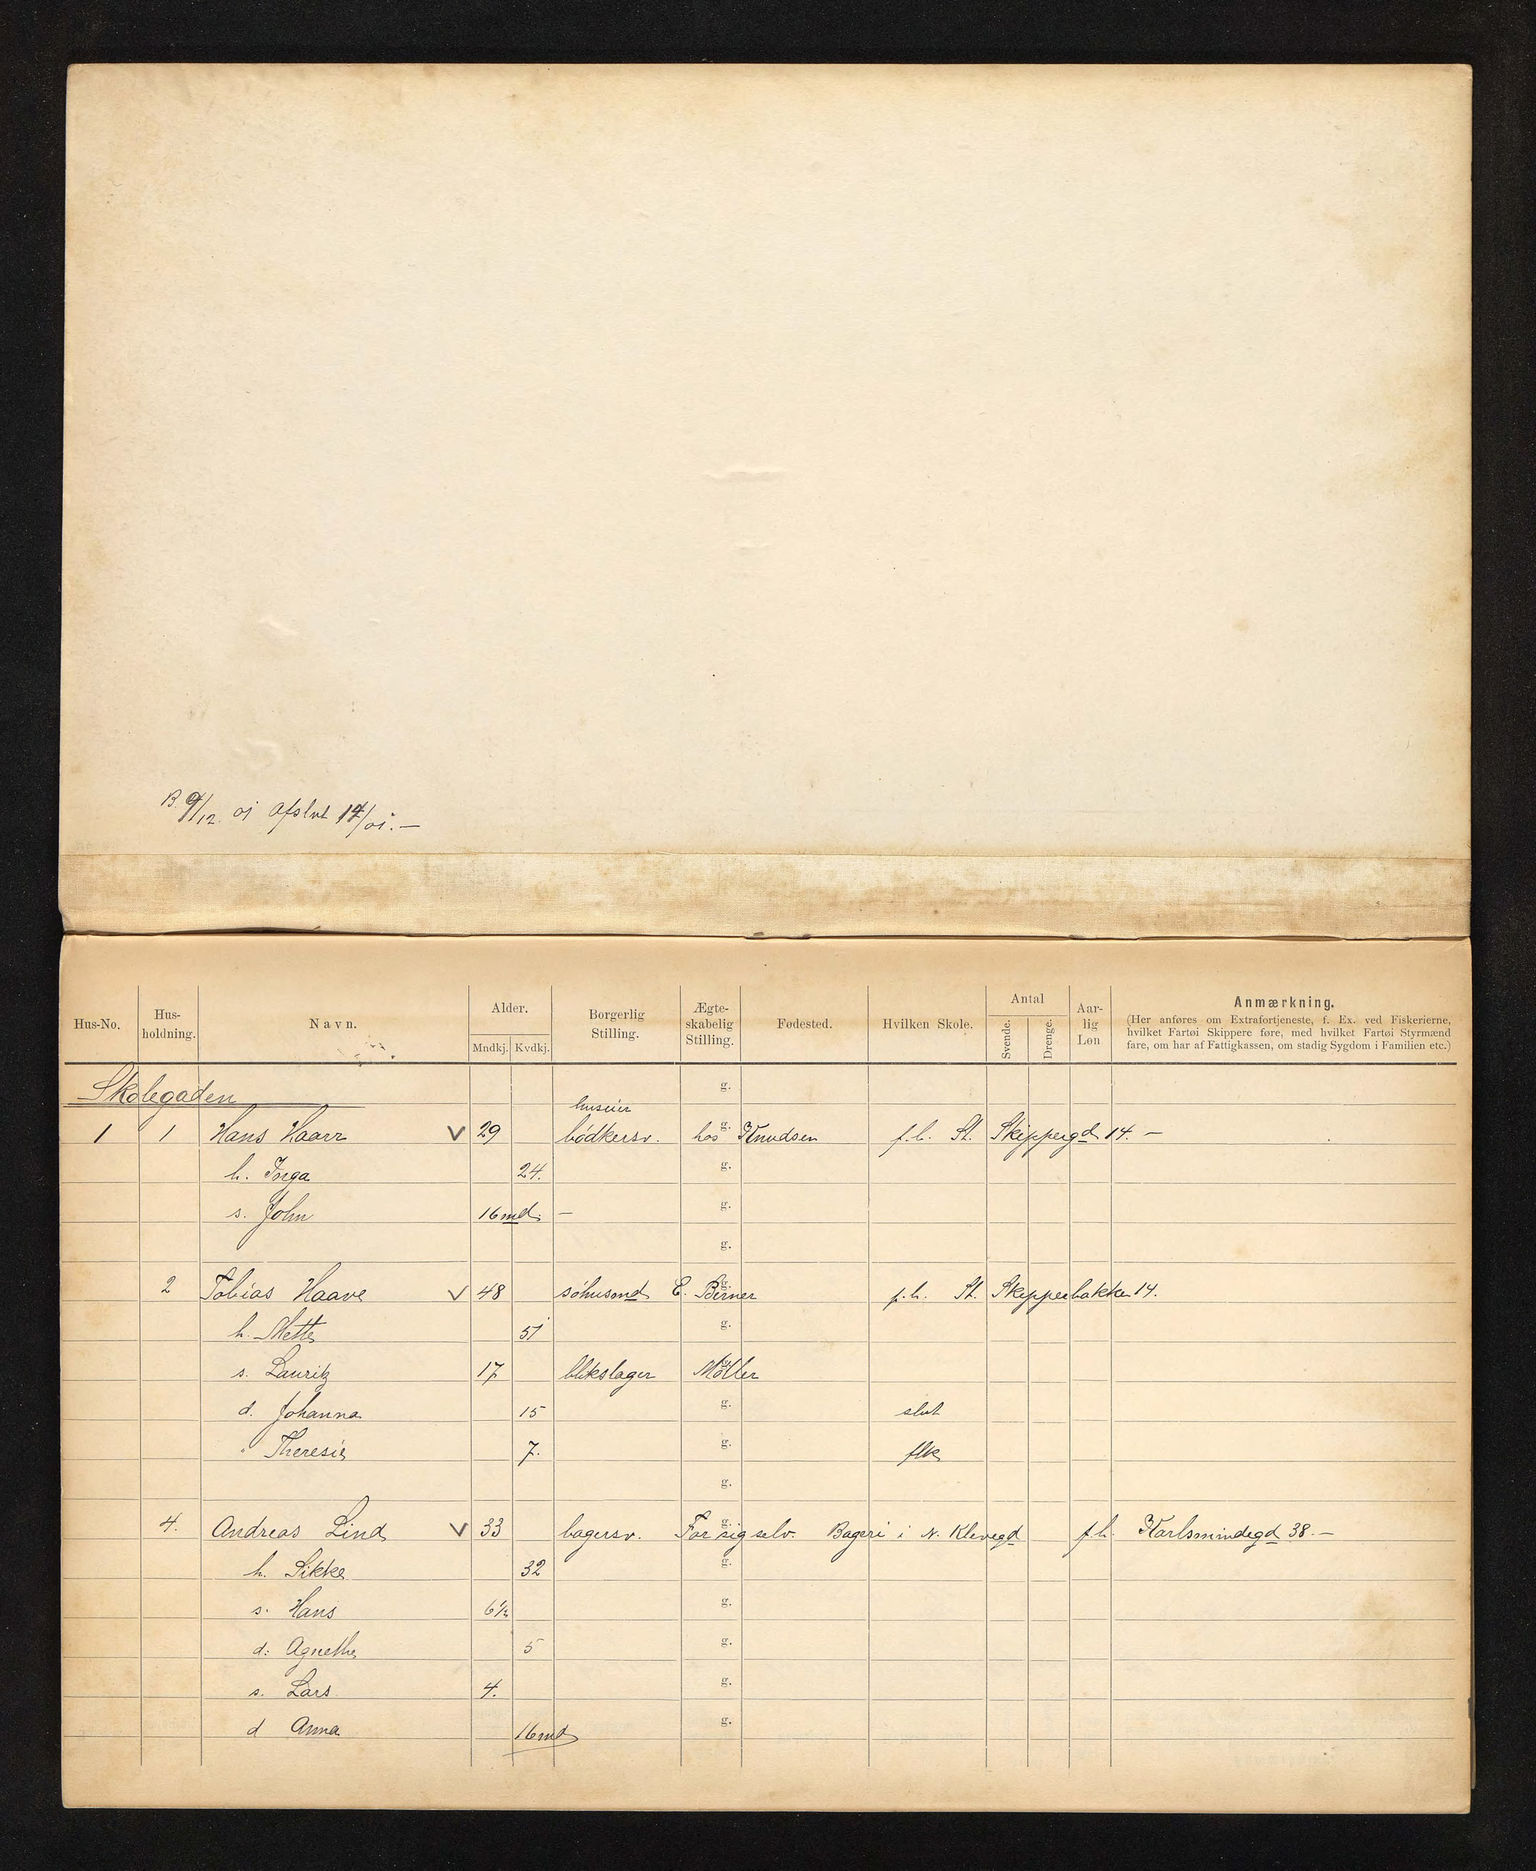 B 9/12. 01 Afslut 17/01. —
Hus-No. Hus-holdning. Navn. Alder. Mndkj. Kvdkj. Borgerlig Stilling. Ægte-skabelig Stilling. Fødested. Hvilken Skole. Antal Svende. Drenge. Aar-lig Løn Anmærkning.
(Her anføres om Extrafortjeneste, f. Ex. ved Fiskerierne,
hvilket Fartøi Skippere føre, med hvilket Fartøi Styrmænd
fare, om har af Fattigkassen, om stadig Sygdom i Familien etc.)
Skolegaden g.
huseier
1 1 Hans Haarr V 29 bödkersv. hos g. Knudsen f.b. St. Skippergd 14. —
h. Inga 24. g.
s. John 16 md. — g.
g.
2 Tobias Haave V 48 söhusmd E. Berner g. f.b. St. Skipperbakken 14.
h. Mette 51 g.
s. Lauritz 17 blikslager Möller g.
d. Johanna 15 g. slut
" Theresie 7. g. flk
g.
4. Andreas Lind V 33 bagersv. For sig selv. g. Bageri i N. Klevegd f.b. Karlsmindegd 38. —
h. Sikke 32 g.
s. Hans 6½ g.
d. Agnethe 5 g.
s. Lars 4. g.
d Anna 16 md g.